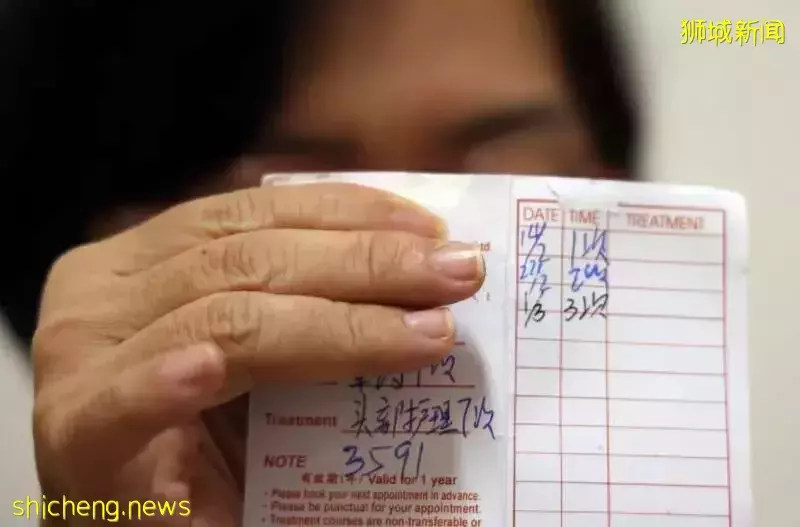 狮城新闻
DATE TIME TREATMENT
14/2 1次
22/2 2次
1/3 3次
Treatment 头部护理7次
NOTE 3591
有效期1年/ Valid for 1 year
- Please book your next appointment in advance.
- Please be punctual for your appointment.
- Treatment courses are non-transferable or
shicheng.news